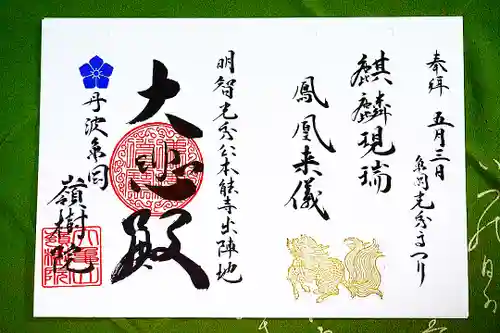 奉拝 五月三日
亀岡光秀まつり
麒麟現瑞
鳳凰来儀
明智光秀公本能寺出陣地
大悲殿
丹波亀岡
嶺樹院